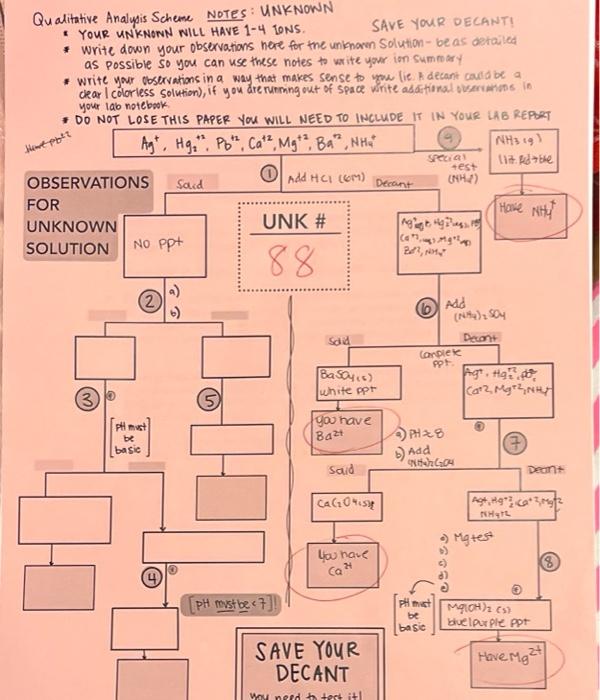 Qualitative Analysis Scheme NOTES: UNKNOWN
SAVE YOUR DECANT!
* YOUR UNKNOWN WILL HAVE 1-4 IONS.
* Write down your observations here for the unknown solution - be as detailed
as possible so you can use these notes to write your ion summary
* Write your observations in a way that makes sense to you (ie. A decant could be a
clear | colorless solution), if you are running out of space write additional observations in
your lab notebook.
* DO NOT LOSE THIS PAPER YOU WILL NEED TO INCLUDE IT IN YOUR LAB REPORT
Ag+, Hg2+2, Pb+2, Ca+2, Mg+2, Ba+2, NH4+
9
special
test
(NH4+)
NH3(g)
lit. Red→blue
Have NH4+
1
Add HCl (6M)
Solid
Decant
OBSERVATIONS
FOR
UNKNOWN
SOLUTION
NO ppt
UNK #
88
2
a)
b)
6
Add
(NH4)2SO4
Solid
Decant
complete
ppt.
BaSO4(s)
white ppt
Ag+, Hg2+2, Pb+2
Ca+2, Mg+2, NH4+
you have
Ba2+
3
5
[pH must
be
basic]
a) PH≥8
b) Add
(NH4)2C2O4
7
Solid
Decant
CaC2O4(s)
You have
Ca2+
a) Mg test
b)
c)
d)
e)
8
4
[pH must be < 7]!
[pH must
be
basic]
Mg(OH)2 (s)
blue/purple ppt
Have Mg2+
SAVE YOUR
DECANT
You need to test it!